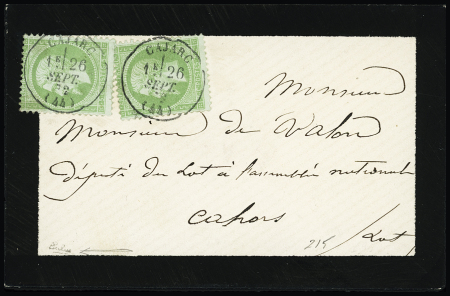 CAJARC
1E/ 26
SEPT.
72
(44)
CAJARC
1E/ 26
SEPT.
(44)
Monsieur
Monsieur De Valon
député du Lot à l'assemblée nationale
Cahors
Lot